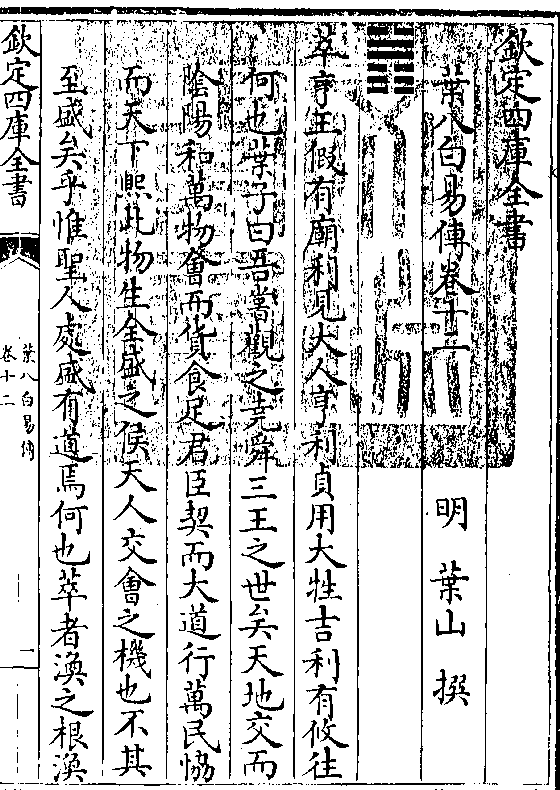 欽定四庫全書
葉八白易傳卷十二
明 葉山 撰
萃亨王假有廟利見大人亨利貞用大牲吉利有攸往
何也葉子曰吾嘗觀之堯舜三王之世矣天地交而
陰陽和萬物會而貨食足君臣契而大道行萬民恊
而天下熈此物生全盛之候天人交會之機也不其
至盛矣乎惟聖人處盛有道焉何也萃者渙之根渙
欽定四庫全書
葉八白易傳
卷十二
一